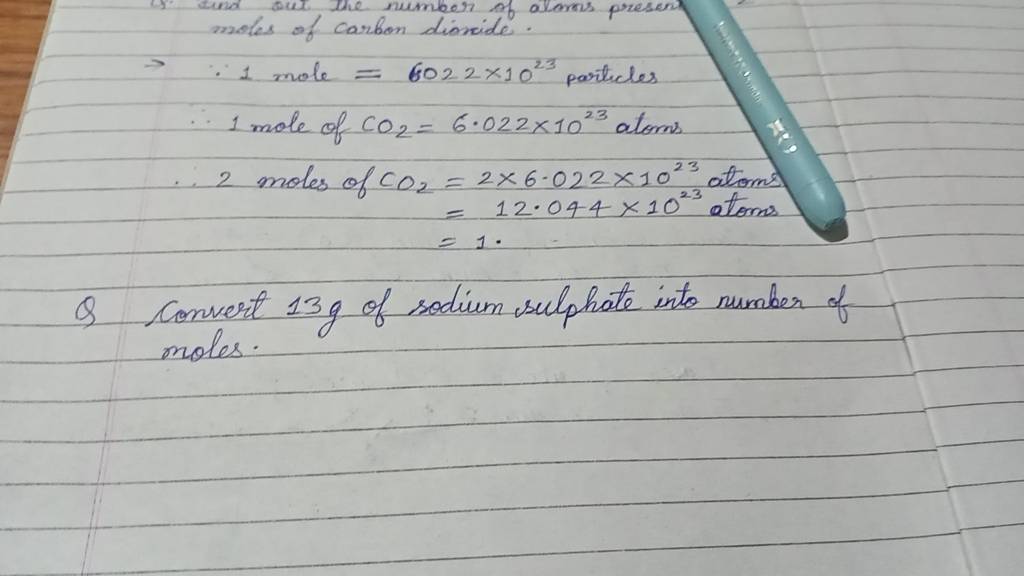 Q. find out the number of atoms present
moles of carbon dioxide.
→ ∵ 1 mole = 6022×10²³ particles
∴ 1 mole of CO₂ = 6.022×10²³ atoms
∴ 2 moles of CO₂ = 2×6.022×10²³ atoms
= 12.044×10²³ atoms
= 1.
Q Convert 13g of sodium sulphate into number of
moles.